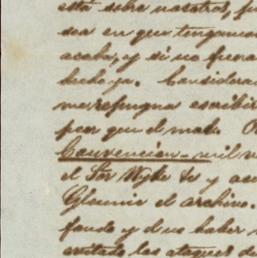 está sobre nosotros,
sea en que tengamos
acaba, y si no fuera
hecho ya. Considera
me repugna escribir
peor que el mal.
Convencion
el Sor Wyke &c y
el archivo.
y d no haber
evitado los ataques d